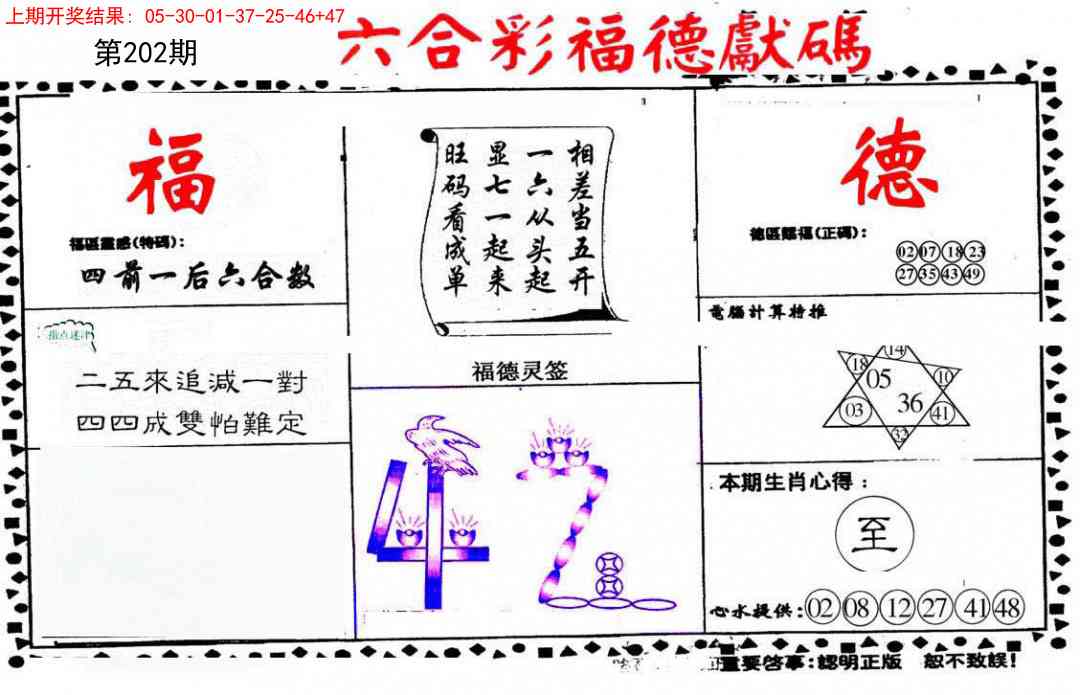 上期开奖结果：05-30-01-37-25-46+47
第202期
六合彩福德獻碼
福
福區靈感(特碼)：
四前一后六合数
相差当五开
一六从头起
显七一起来
旺码看成单
福德灵签
德
德區賜福(正碼)：
02 07 18 23
27 35 43 49
指点迷津
二五來追減一對
四四成雙怕難定
電腦計算特推
14
18 05 10
03 36 41
32
本期生肖心得：
至
心水提供：02 08 12 27 41 48
重要啓事：認明正版 恕不致誤！